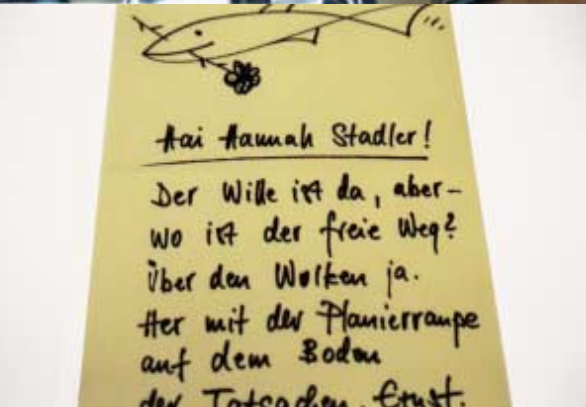 Hai Hannah Stadler!
Der Wille ist da, aber-
wo ist der freie Weg?
Über den Wolken ja.
Her mit der Planierraupe
auf dem Boden
der Tatsachen. Ernst.